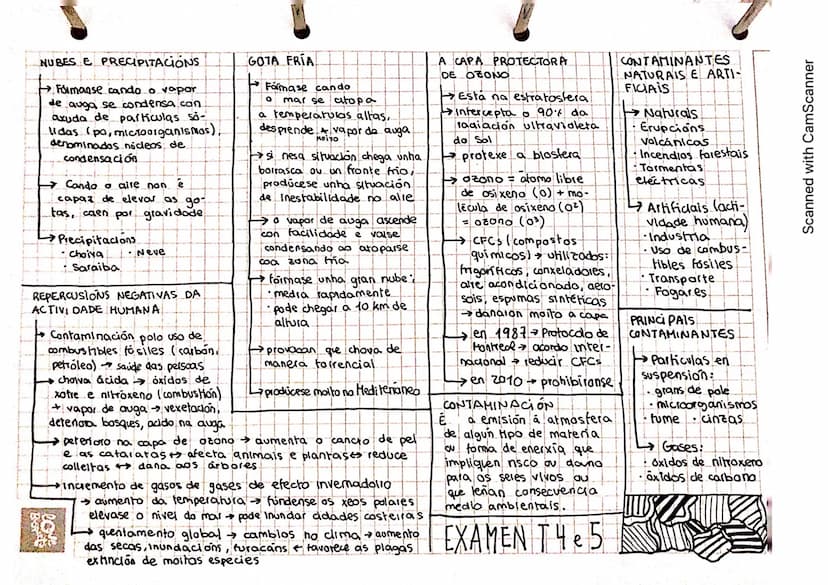 NUBES E PRECIPITACIÓNS
→ Fórmanse cando o vapor
de auga se condensa con
axuda de partículas só-
lidas (po, microorganismos),
denominados núcleos de
condensación
→ Cando o aire non é
capaz de elevar as go-
tas, caen por gravidade
→ Precipitacións
· Choiva · Neve
· Saraiba
REPERCUSIÓNS NEGATIVAS DA
ACTIVIDADE HUMANA
→ Contaminación polo uso de
combustibles fósiles (carbón,
petróleo) → saúde das persoas
→ choiva ácida → óxidos de
xofre e nitróxeno (combustión)
+ vapor de auga → vexetación,
deteriora bosques, acido na auga
→ deterioro na capa de ozono → aumenta o cancro de pel
e as cataratas → afecta animais e plantas → reduce
colleitas ↔ dana aos árbores
→ incremento de gases de gases de efecto invernadoiro
→ aumento da temperatura → fúndense os xeos polares
elevase o nivel do mar → pode inundar cidades costeiras
→ quentamento global → cambios no clima → aumento
das secas, inundacións, furacáns + favorece as plagas
extinción de moitas especies
GOTA FRÍA
→ Fórmase cando
o mar se atopa
a temperaturas altas,
desprende moito vapor da auga
→ si nesa situación chega unha
borrasca ou un fronte frío,
prodúcese unha situación
de inestabilidade no aire
→ o vapor de auga ascende
con facilidade e vaise
condensando ao atoparse
coa zona fría
→ fórmase unha gran nube:
· media rapidamente
· pode chegar a 10 km de
altura
→ provocan que chova de
maneira torrencial
→ prodúcese moito no Mediterráneo
A CAPA PROTECTORA
DE OZONO
→ Está na estratosfera
→ Intercepta o 90% da
radiación ultravioleta
do Sol
→ protexe a biosfera
→ ozono = átomo libre
de osíxeno (O) + mo-
lécula de osíxeno (O²)
= ozono (O³)
→ CFCs (compostos
químicos) → utilizados:
frigoríficos, conxeladores,
aire acondicionado, aero-
sois, espumas sintéticas
→ danaron moito a capa
→ en 1987 → Protocolo de
Montreal → acordo inter-
nacional → reducir CFCs
→ en 2010 → prohibíronse
CONTAMINACIÓN
É a emisión á atmosfera
de algún tipo de materia
ou forma de enerxía que
impliquen risco ou dano
para os seres vivos ou
que teñan consecuencia
medio ambientais.
EXAMEN T4 e 5
CONTAMINANTES
NATURAIS E ARTI-
FICIAIS
→ Naturais
· Erupcións
volcánicas
· Incendios forestais
· Tormentas
eléctricas
→ Artificiais (acti-
vidade humana)
· Industria
· Uso de combus-
tibles fósiles
· Transporte
· Fogares
PRINCIPAIS
CONTAMINANTES
→ Partículas en
suspensión:
· grans de pole
· microorganismos
· fume · cinzas
→ Gases:
· óxidos de nitroxeno
· óxidos de carbono
Scanned with CamScanner